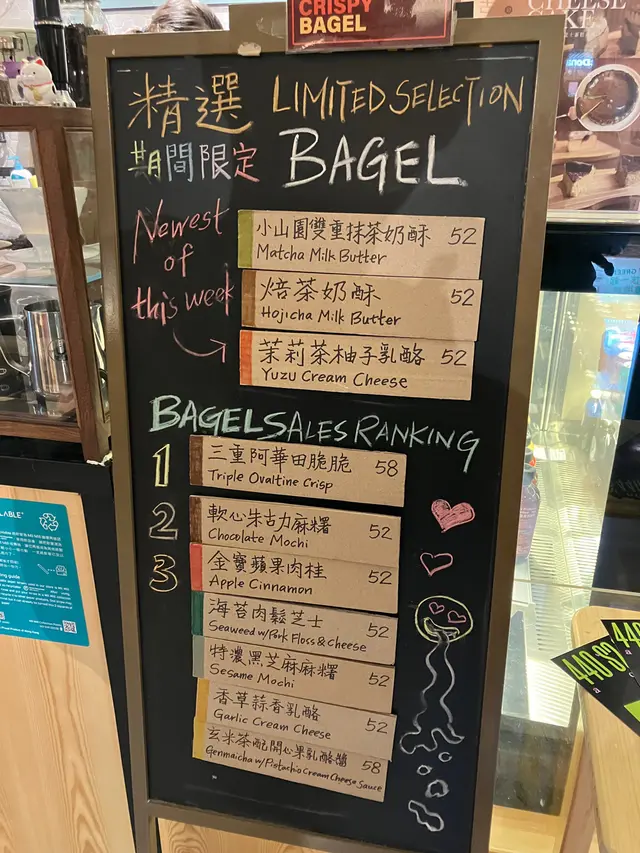 CRISPY
BAGEL
CHEESE
CAKE
精選 LIMITED SELECTION
期間限定 BAGEL
Newest
of
this week
小山園雙重抹茶奶酥 52
Matcha Milk Butter
焙茶奶酥 52
Hojicha Milk Butter
茉莉茶柚子乳酪 52
Yuzu Cream Cheese
BAGEL SALES RANKING
1
三重阿華田脆脆 58
Triple Ovaltine Crisp
2
軟心朱古力麻糬 52
Chocolate Mochi
3
金寶蘋果肉桂 52
Apple Cinnamon
海苔肉鬆芝士 52
Seaweed w/Pork Floss & cheese
特濃黑芝麻麻糬 52
Sesame Mochi
香草蒜香乳酪 52
Garlic Cream Cheese
玄米茶配開心果乳酪醬 58
Genmaicha w/Pistachio Cream Cheese Sauce